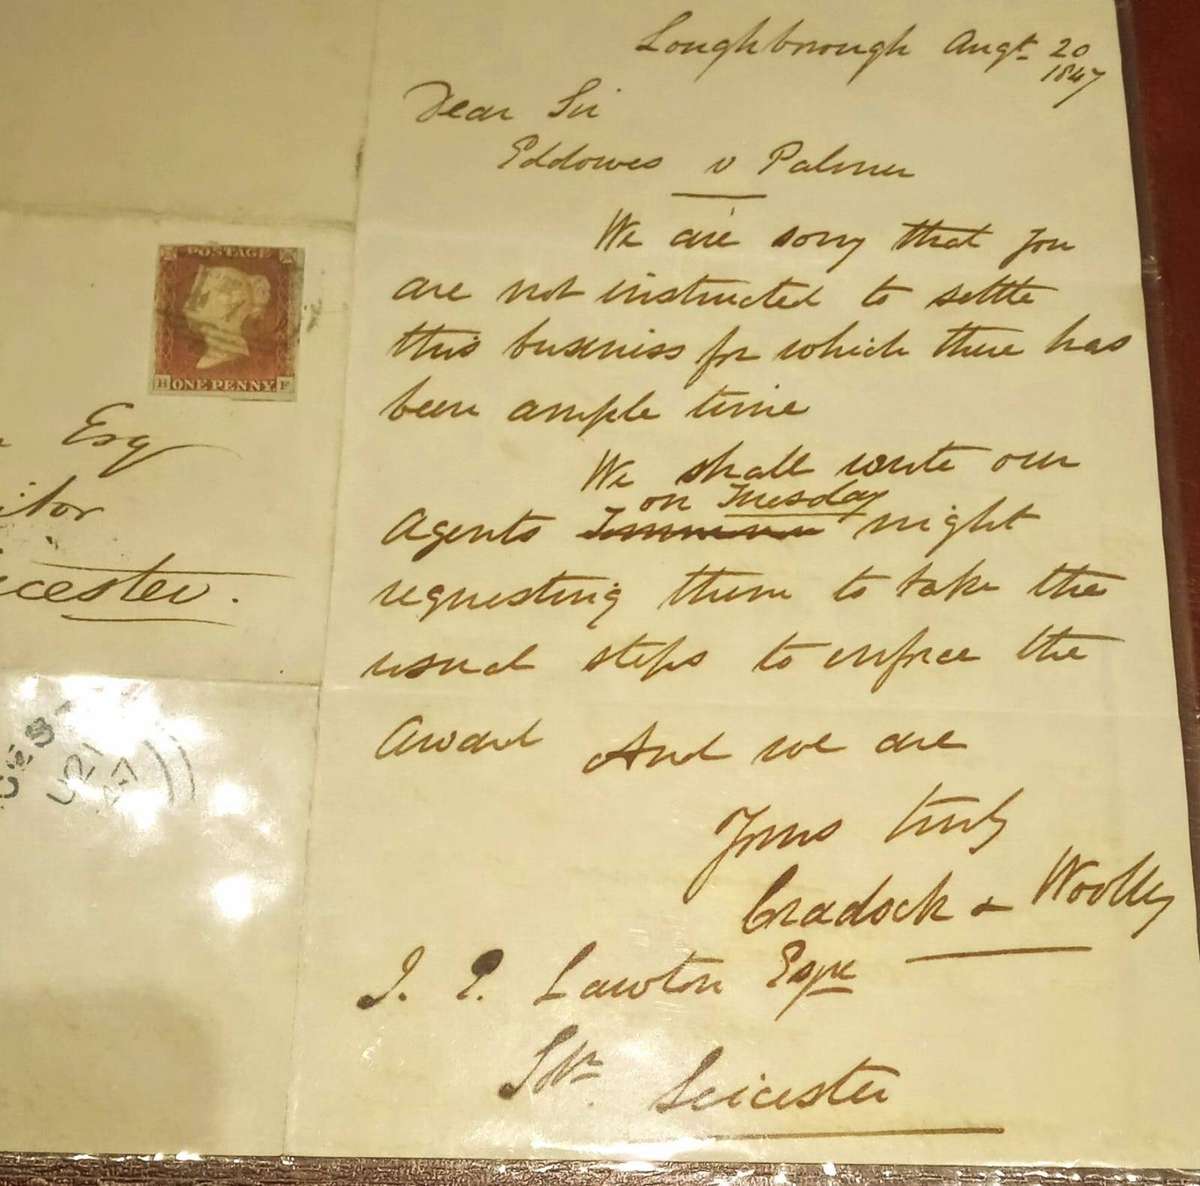 POSTAGE
H ONE PENNY F
Esq
itor
icester.
Loughborough Augt 20
1847
Dear Sir
Eddowes v Palmer
We are sorry that you
are not instructed to settle
this business for which there has
been ample time
We shall write our
on Tuesday
Agents night
requesting them to take the
usual steps to enforce the
Award And we are
Yours truly
Cradock & Woolley
J. P. Lawton Esqre
Solr. Leicester